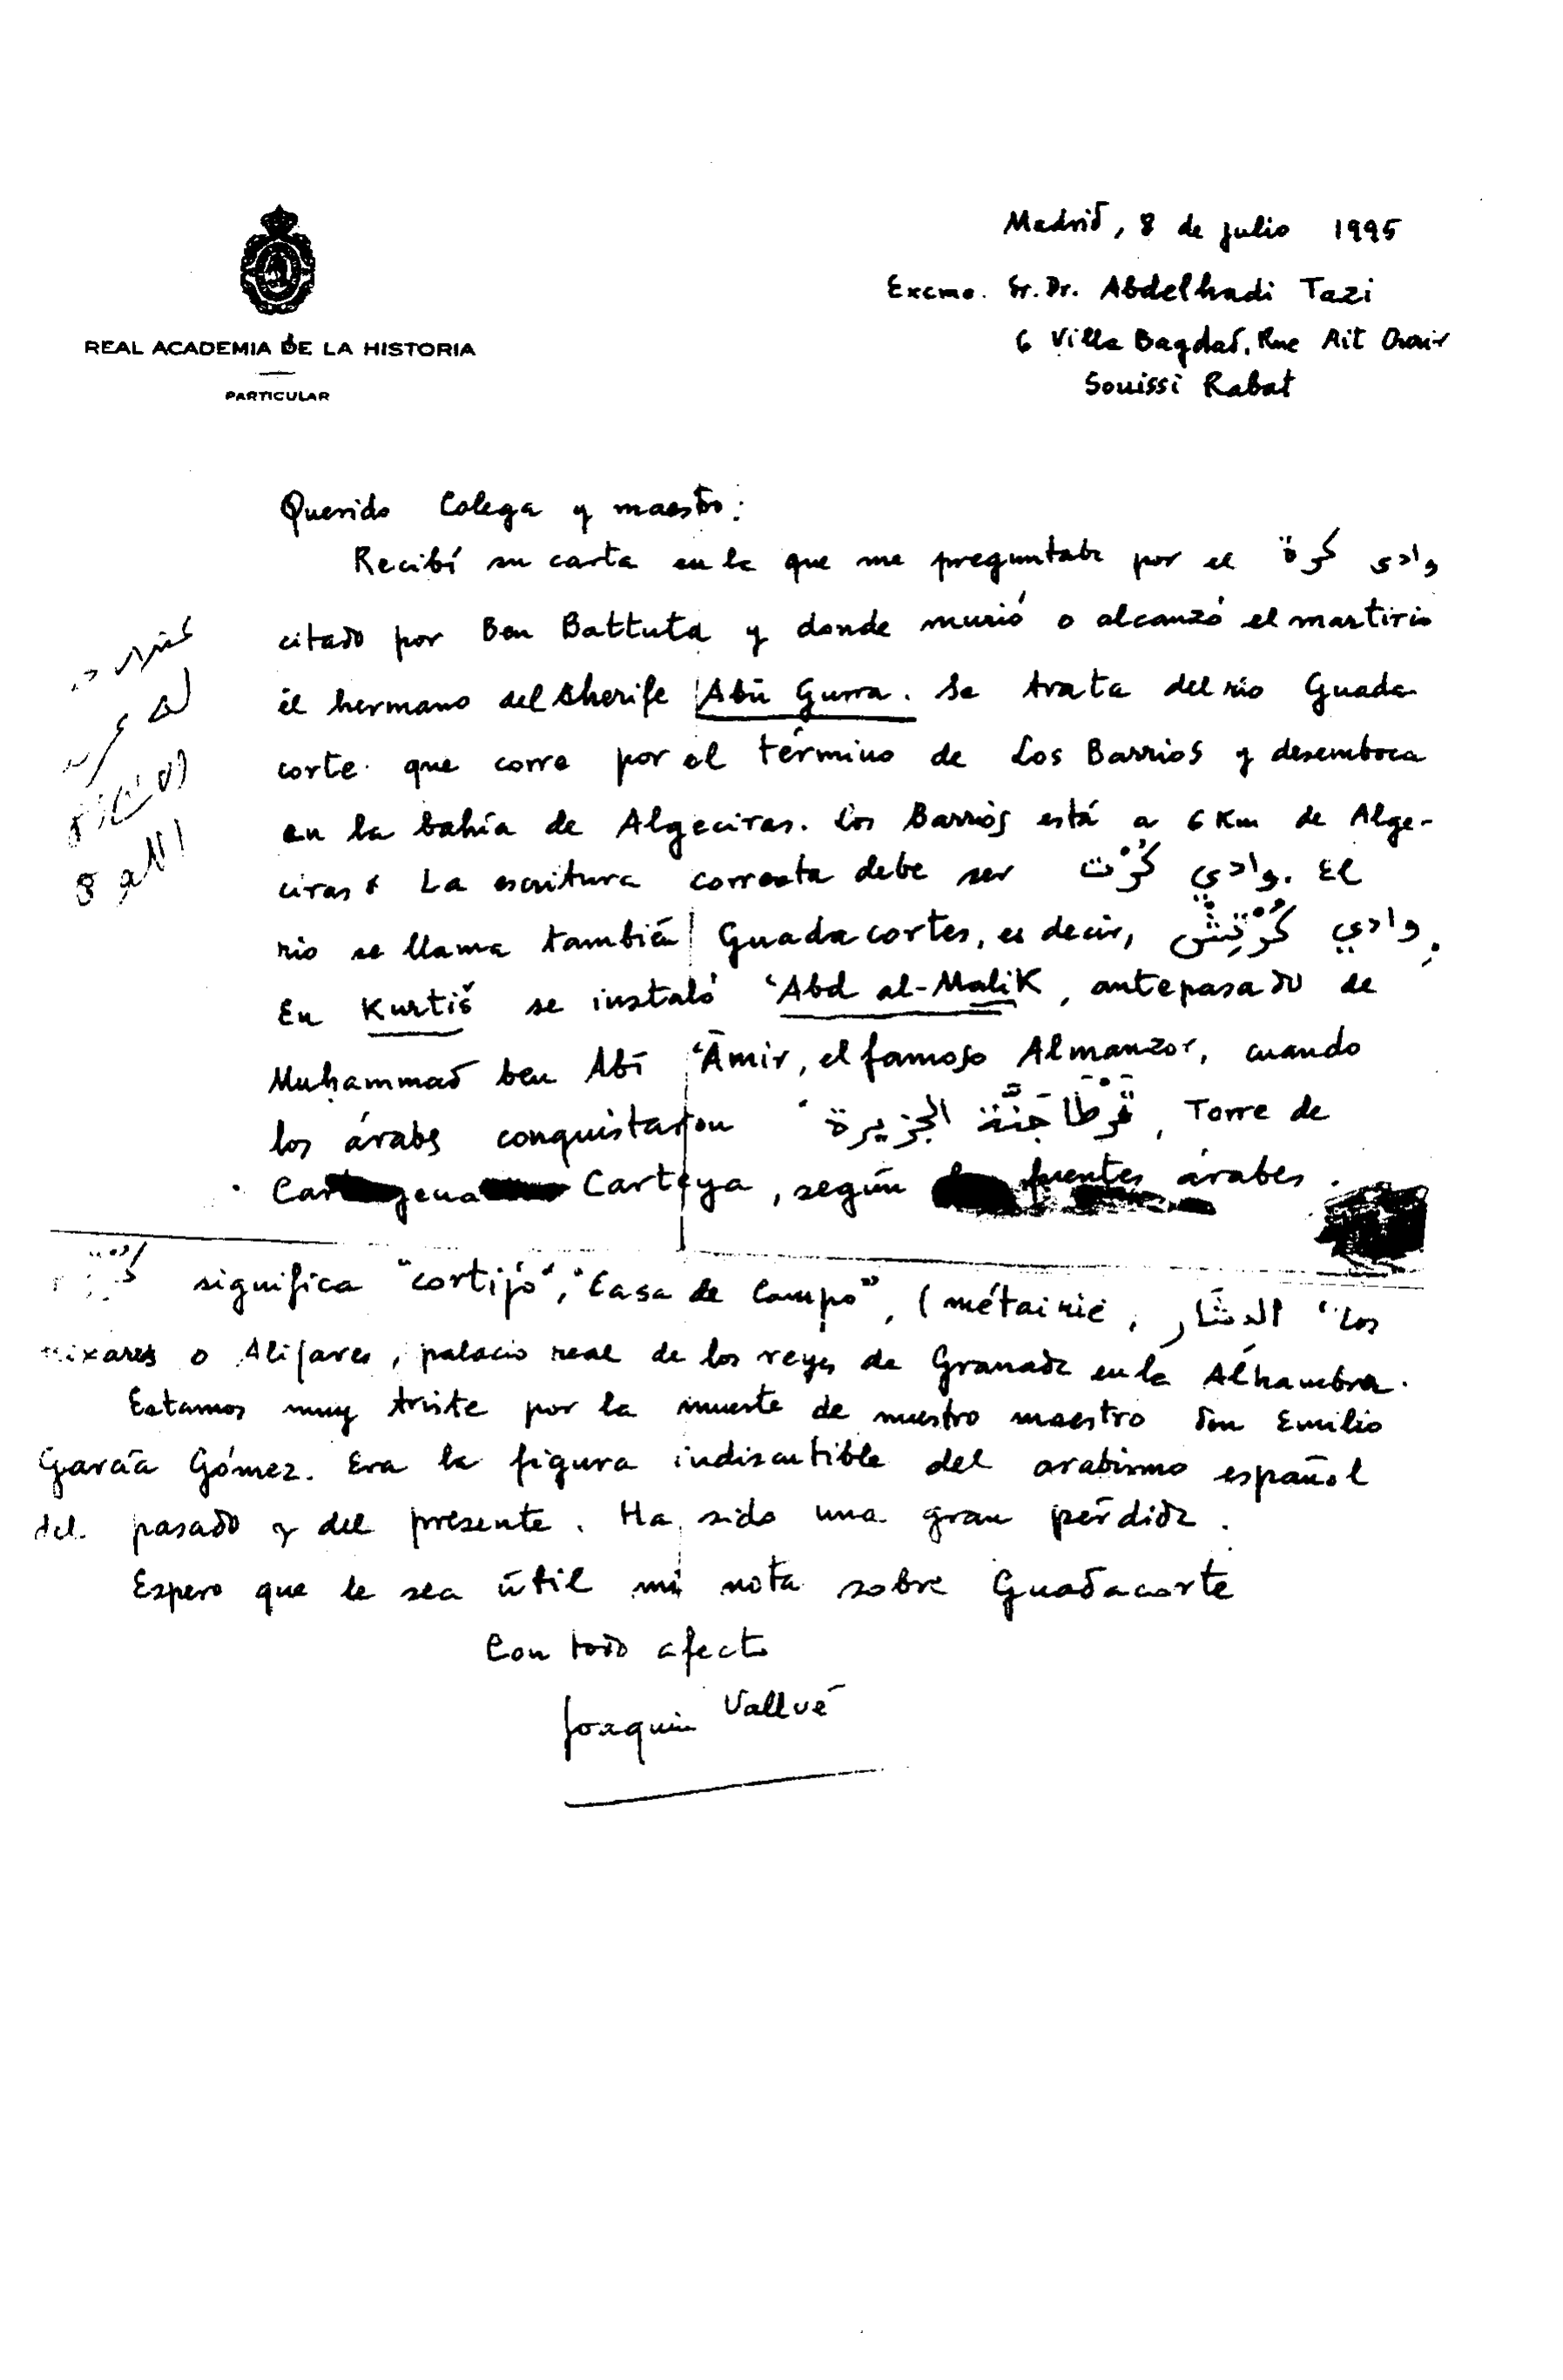 Madrid, 8 de julio 1995
Excmo. Sr. Dr. Abdelhadi Tazi
6 Villa Bagdad, Rue Ait Ourir
Souissi Rabat
REAL ACADEMIA DE LA HISTORIA
PARTICULAR
Querido Colega y maestro:
Recibí su carta en la que me preguntaba por el وادى كرة
citado por Ben Battuta y donde murió o alcanzó el martirio
el hermano del Sherife Abū Gurra. Se trata del río Guada-
corte que corre por el término de Los Barrios y desemboca
en la bahía de Algeciras. Los Barrios está a 6 Km de Alge-
ciras. La escritura correcta debe ser وادي كُرْت. El
río se llama también Guadacortes, es decir, وادي كُرْتِشْ.
En Kurtiš se instaló ʿAbd al-Malik, antepasado de
Muḥammad ben Abī ʿĀmir, el famoso Almanzor, cuando
los árabes conquistaron قَرْطَاجَنَّة الجزيرة, Torre de
Cartagena Carteya, según fuentes árabes.
significa "cortijo", "Casa de Campo", (métairie, الدشَار "Los
Alijares, palacio real de los reyes de Granada en la Alhambra.
Estamos muy triste por la muerte de nuestro maestro don Emilio
García Gómez. Era la figura indiscutible del arabismo español
del pasado y del presente. Ha sido una gran pérdida.
Espero que le sea útil mi nota sobre Guadacorte
Con todo afecto
Joaquín Vallvé